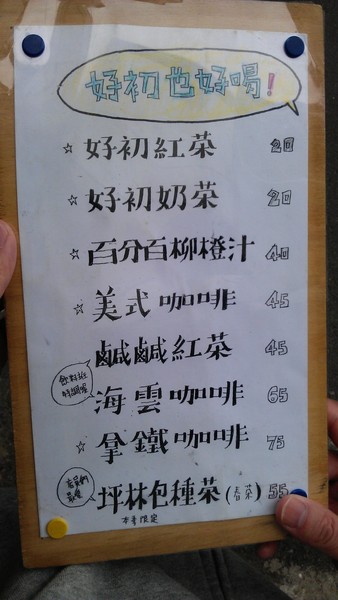 好初也好喝!
☆ 好初紅茶 20
☆ 好初奶茶 20
☆ 百分百柳橙汁 40
☆ 美式咖啡 45
鹹鹹紅茶 45
海雲咖啡 65
☆ 拿鐵咖啡 75
坪林包種茶(春茶) 55
本季限定